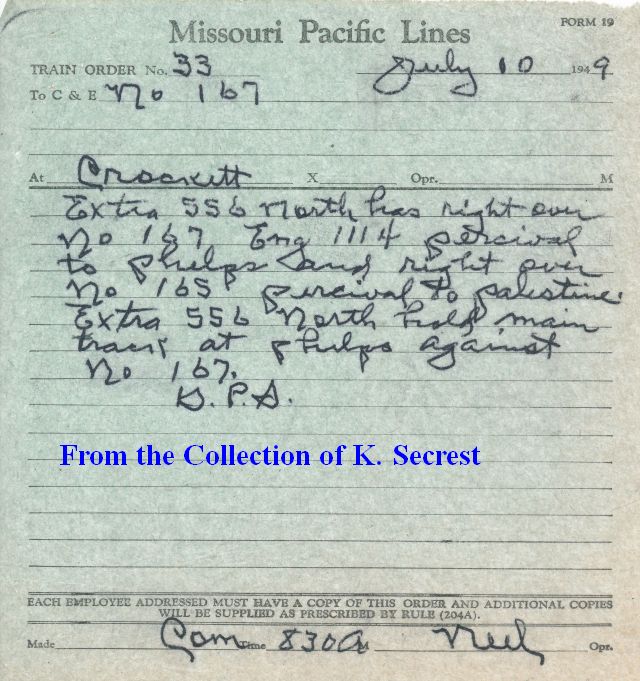 Missouri Pacific Lines
FORM 19
TRAIN ORDER No. 33 July 10 1949
To C & E No 167
At Crockett X Opr. M
Extra 556 North has right over
No 167 Eng 1114 percival
to phelps and right over
No 165 percival to palestine.
Extra 556 North hold main
track at phelps against
No 167.
G.P.S.
From the Collection of K. Secrest
EACH EMPLOYEE ADDRESSED MUST HAVE A COPY OF THIS ORDER AND ADDITIONAL COPIES
WILL BE SUPPLIED AS PRESCRIBED BY RULE (204A).
Made Com Time 830A M Neel Opr.